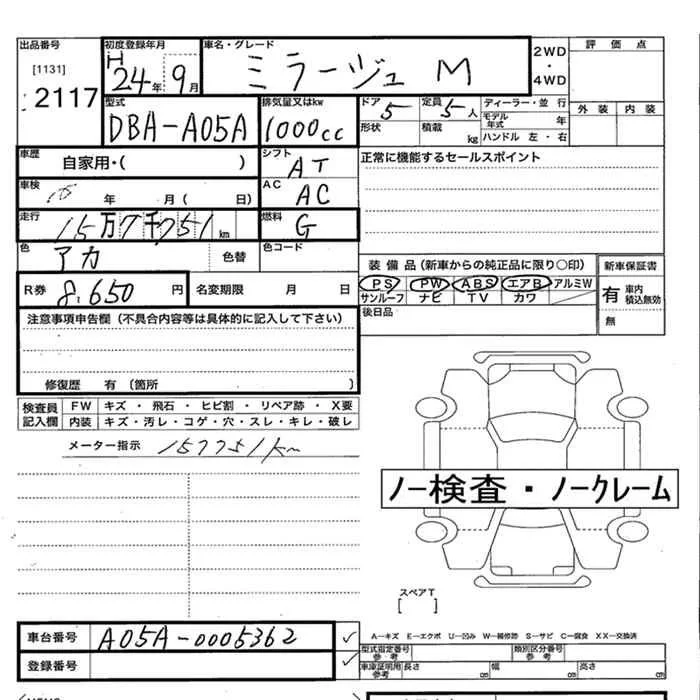 出品番号 [1131] 2117
初度登録年月 H 24年 9月
車名・グレード ミラージュ M
2WD・4WD
評価点
外装 内装
型式 DBA-A05A
排気量又はkw 1000cc
ドア 5 定員 5人
形状 積載 kg
ディーラー・並行
モデル年式 年
ハンドル 左・右
車歴 自家用・( )
シフト AT
正常に機能するセールスポイント
車検 年 月( 日)
AC AC
走行 15万7千751km
燃料 G
色 アカ 色替
色コード
装備品(新車からの純正品に限り〇印)
新車保証書
PS PW ABS エアB アルミW
サンルーフ ナビ TV カワ
有 車内積込無効
無
R券 8,650円
名変期限 月 日
後日品
注意事項申告欄(不具合内容等は具体的に記入して下さい)
修復歴 有(箇所 )
検査員記入欄
FW キズ・飛石・ヒビ割・リペア跡・X要
内装 キズ・汚レ・コゲ・穴・スレ・キレ・破レ
メーター指示 157751km
ノー検査・ノークレーム
スペアT
[ ]
車台番号 A05A-0005362
登録番号
A―キズ E―エクボ U―凹み W―補修跡 S―サビ C―腐食 XX―交換済
型式指定番号参考 類別区分番号参考
車庫証明用参考 長さ cm 幅 cm 高さ cm